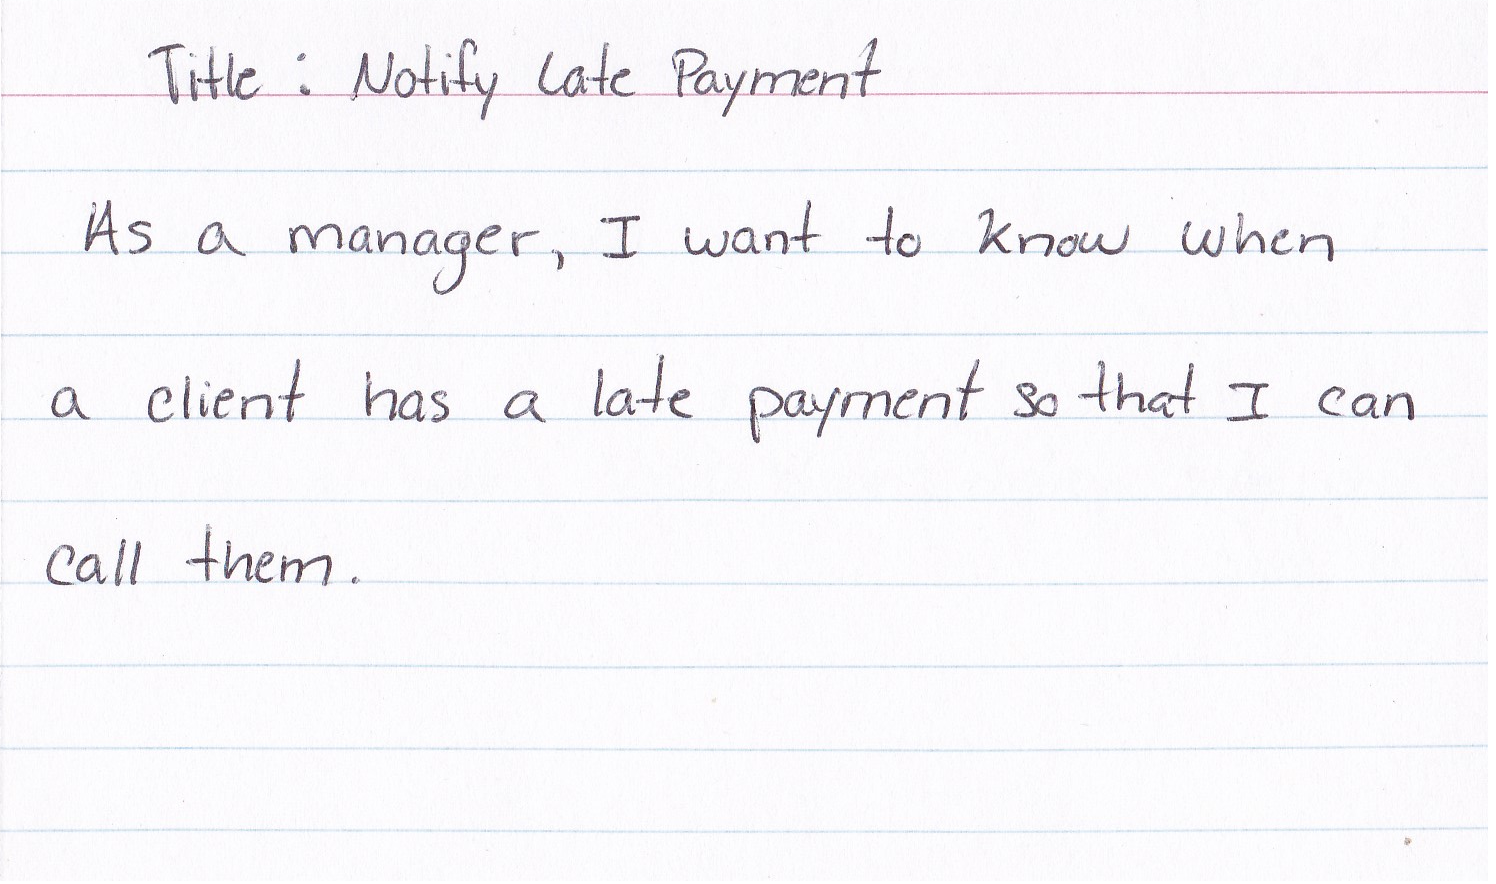 Title : Notify Late Payment
As a manager, I want to know when
a client has a late payment so that I can
call them.